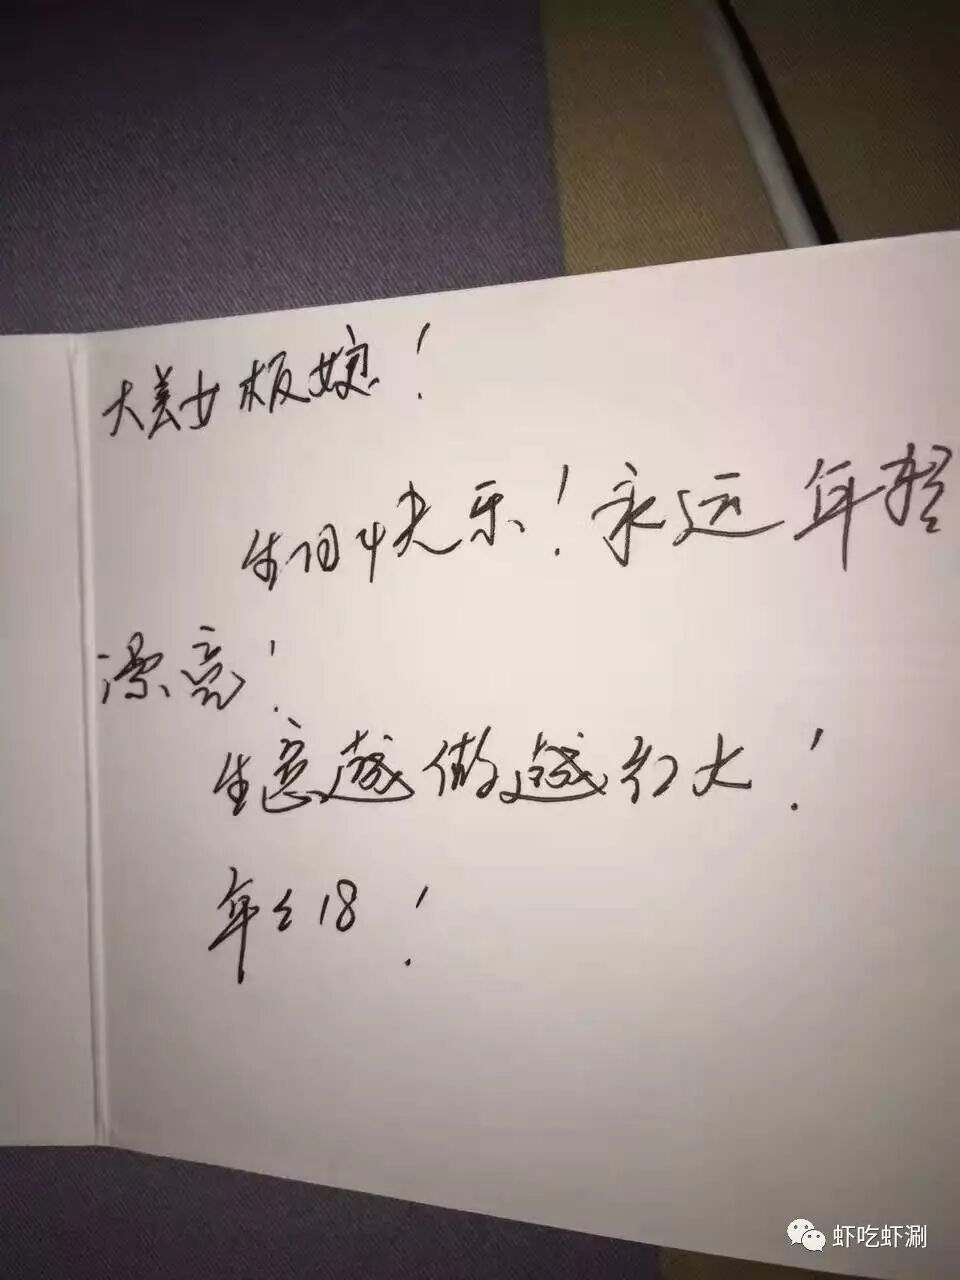 大美女板娘！
生日快乐！永远年轻
漂亮！
生意越做越红火！
年年18！
虾吃虾涮